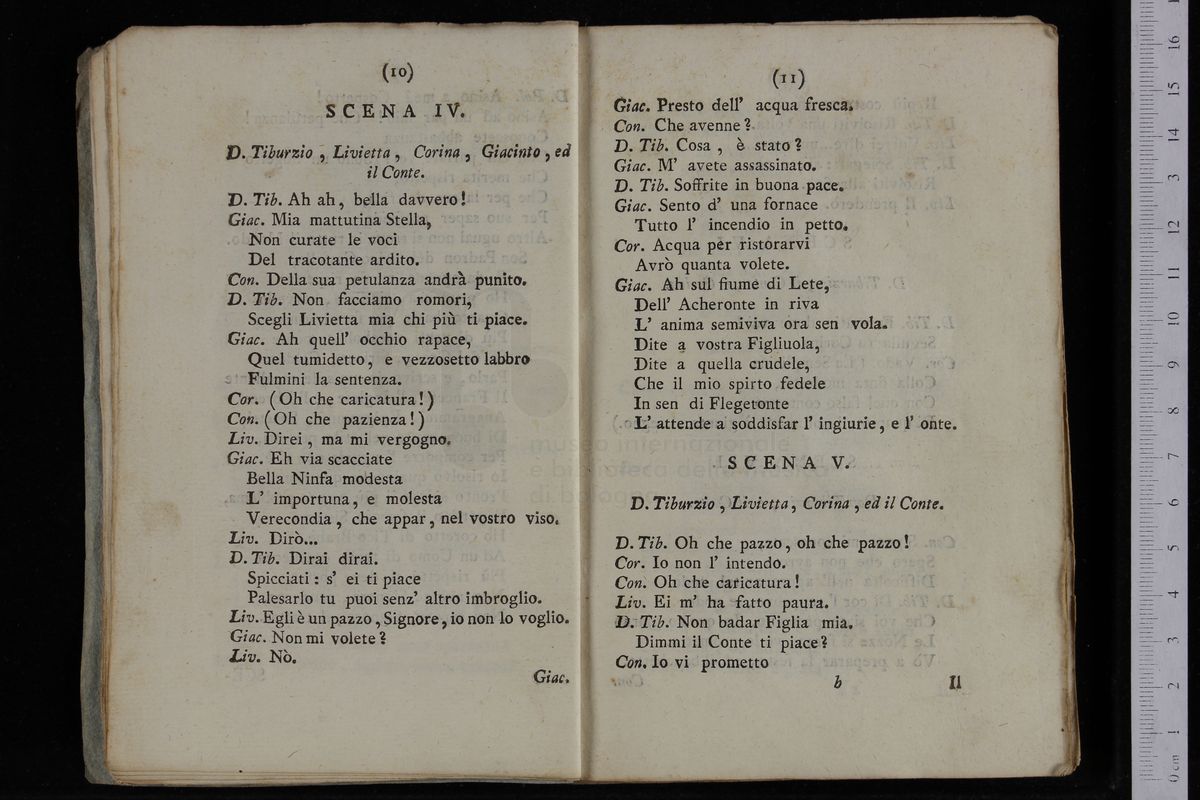 (10)
SCENA IV.
D. Tiburzio , Livietta , Corina , Giacinto , ed
il Conte.
D. Tib. Ah ah, bella davvero!
Giac. Mia mattutina Stella,
Non curate le voci
Del tracotante ardito.
Con. Della sua petulanza andrà punito.
D. Tib. Non facciamo romori,
Scegli Livietta mia chi più ti piace.
Giac. Ah quell' occhio rapace,
Quel tumidetto, e vezzosetto labbro
Fulmini la sentenza.
Cor. (Oh che caricatura!)
Con. (Oh che pazienza!)
Liv. Direi, ma mi vergogno.
Giac. Eh via scacciate
Bella Ninfa modesta
L' importuna, e molesta
Verecondia, che appar, nel vostro viso.
Liv. Dirò...
D. Tib. Dirai dirai.
Spicciati: s' ei ti piace
Palesarlo tu puoi senz' altro imbroglio.
Liv. Egli è un pazzo, Signore, io non lo voglio.
Giac. Non mi volete?
Liv. Nò.
Giac.
(11)
Giac. Presto dell' acqua fresca.
Con. Che avenne?
D. Tib. Cosa, è stato?
Giac. M' avete assassinato.
D. Tib. Soffrite in buona pace.
Giac. Sento d' una fornace
Tutto l' incendio in petto.
Cor. Acqua per ristorarvi
Avrò quanta volete.
Giac. Ah sul fiume di Lete,
Dell' Acheronte in riva
L' anima semiviva ora sen vola.
Dite a vostra Figliuola,
Dite a quella crudele,
Che il mio spirto fedele
In sen di Flegetonte
L' attende a soddisfar l' ingiurie, e l' onte.
SCENA V.
D. Tiburzio , Livietta , Corina , ed il Conte.
D. Tib. Oh che pazzo, oh che pazzo!
Cor. Io non l' intendo.
Con. Oh che caricatura!
Liv. Ei m' ha fatto paura.
D. Tib. Non badar Figlia mia.
Dimmi il Conte ti piace?
Con. Io vi prometto
b Il
museo internazionale
e biblioteca della musica
di bologna
0 cm 1 2 3 4 5 6 7 8 9 10 11 12 13 14 15 16